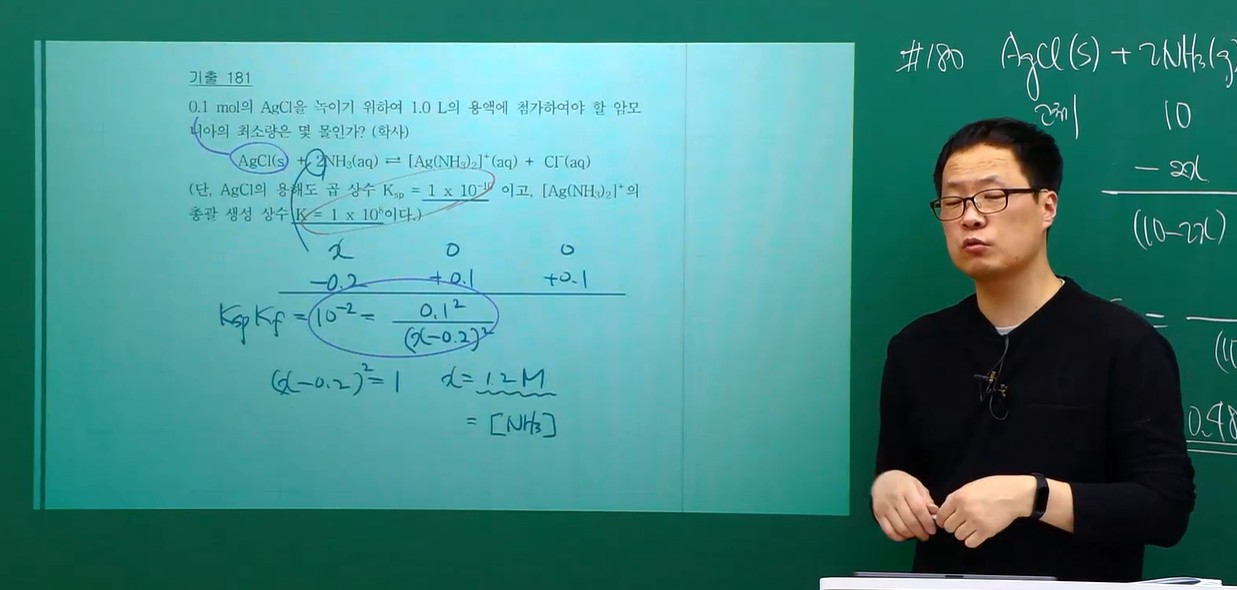 기출 181
0.1 mol의 AgCl을 녹이기 위하여 1.0 L의 용액에 첨가하여야 할 암모
니아의 최소량은 몇 몰인가? (학사)
AgCl(s) + 2NH₃(aq) ⇌ [Ag(NH₃)₂]⁺(aq) + Cl⁻(aq)
(단, AgCl의 용해도 곱 상수 Ksp = 1 x 10⁻¹⁰ 이고, [Ag(NH₃)₂]⁺의
총괄 생성 상수 K = 1 x 10⁸이다.)
x 0 0
-0.2 +0.1 +0.1
Ksp Kf = 10⁻² = 0.1² / (x-0.2)²
(x-0.2)² = 1 x = 1.2 M
= [NH₃]
#180 AgCl(s) + 2NH₃(
고체 10
- 2x
(10-2x)
=
0.48